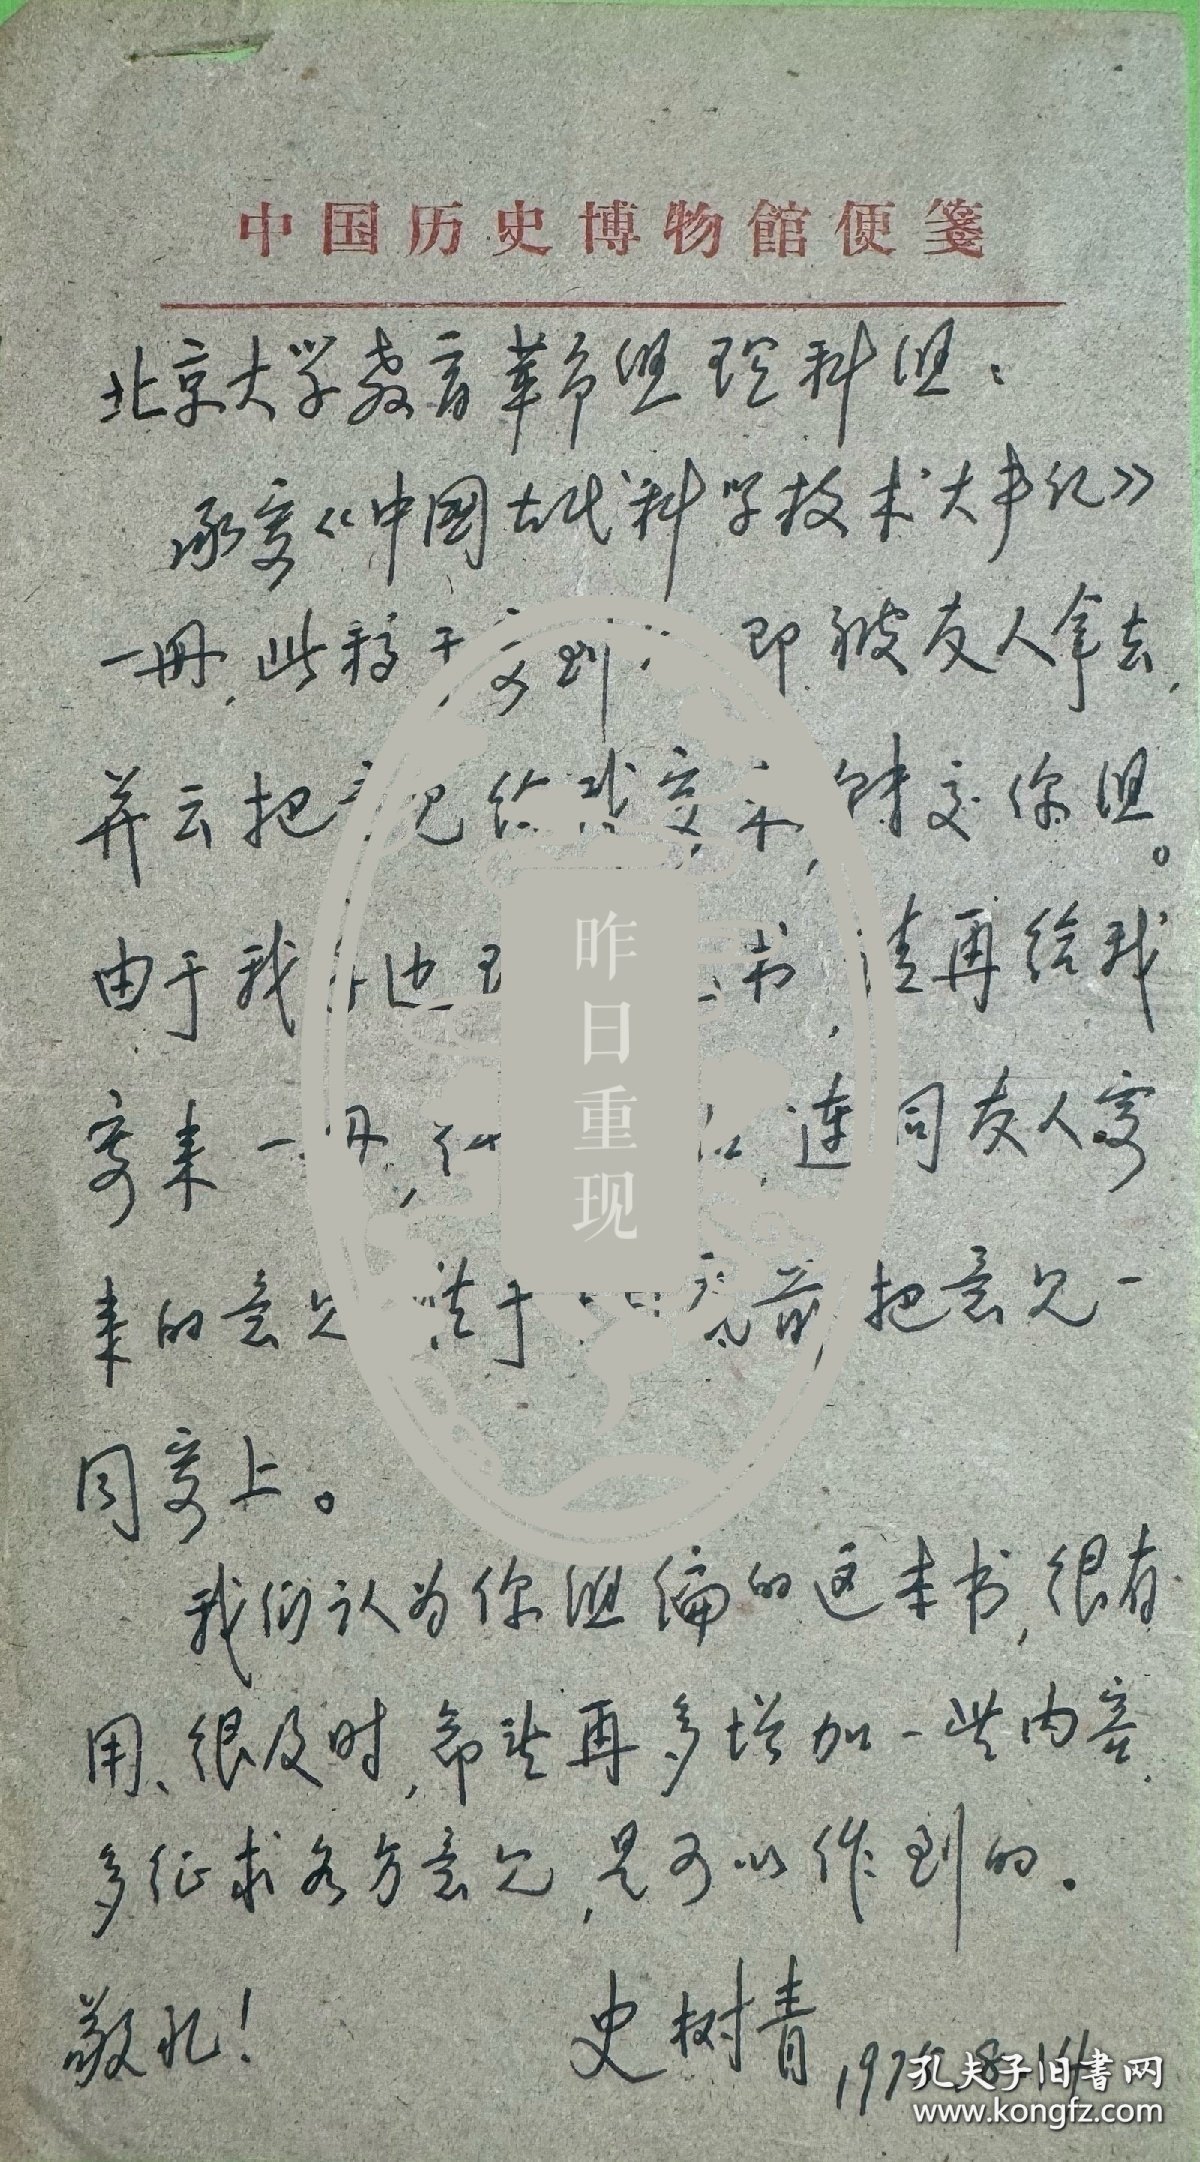 中国历史博物館便箋
北京大学教育革命组理科组：
承寄《中國古代科学技术大事记》
一册，此稿于寄到 即被友人拿去，
并云把意见给我寄来，转交你组。
由于我手边 书，请再给我
寄来一册， 连同友人寄
来的意见 于 前把意见一
同寄上。
我们认为你组编的这本书，很有
用、很及时，希望再多增加一些内容，
多征求各方意见，是可以作到的。
敬礼！
史树青
昨日重现
孔夫子旧书网
www.kongfz.com